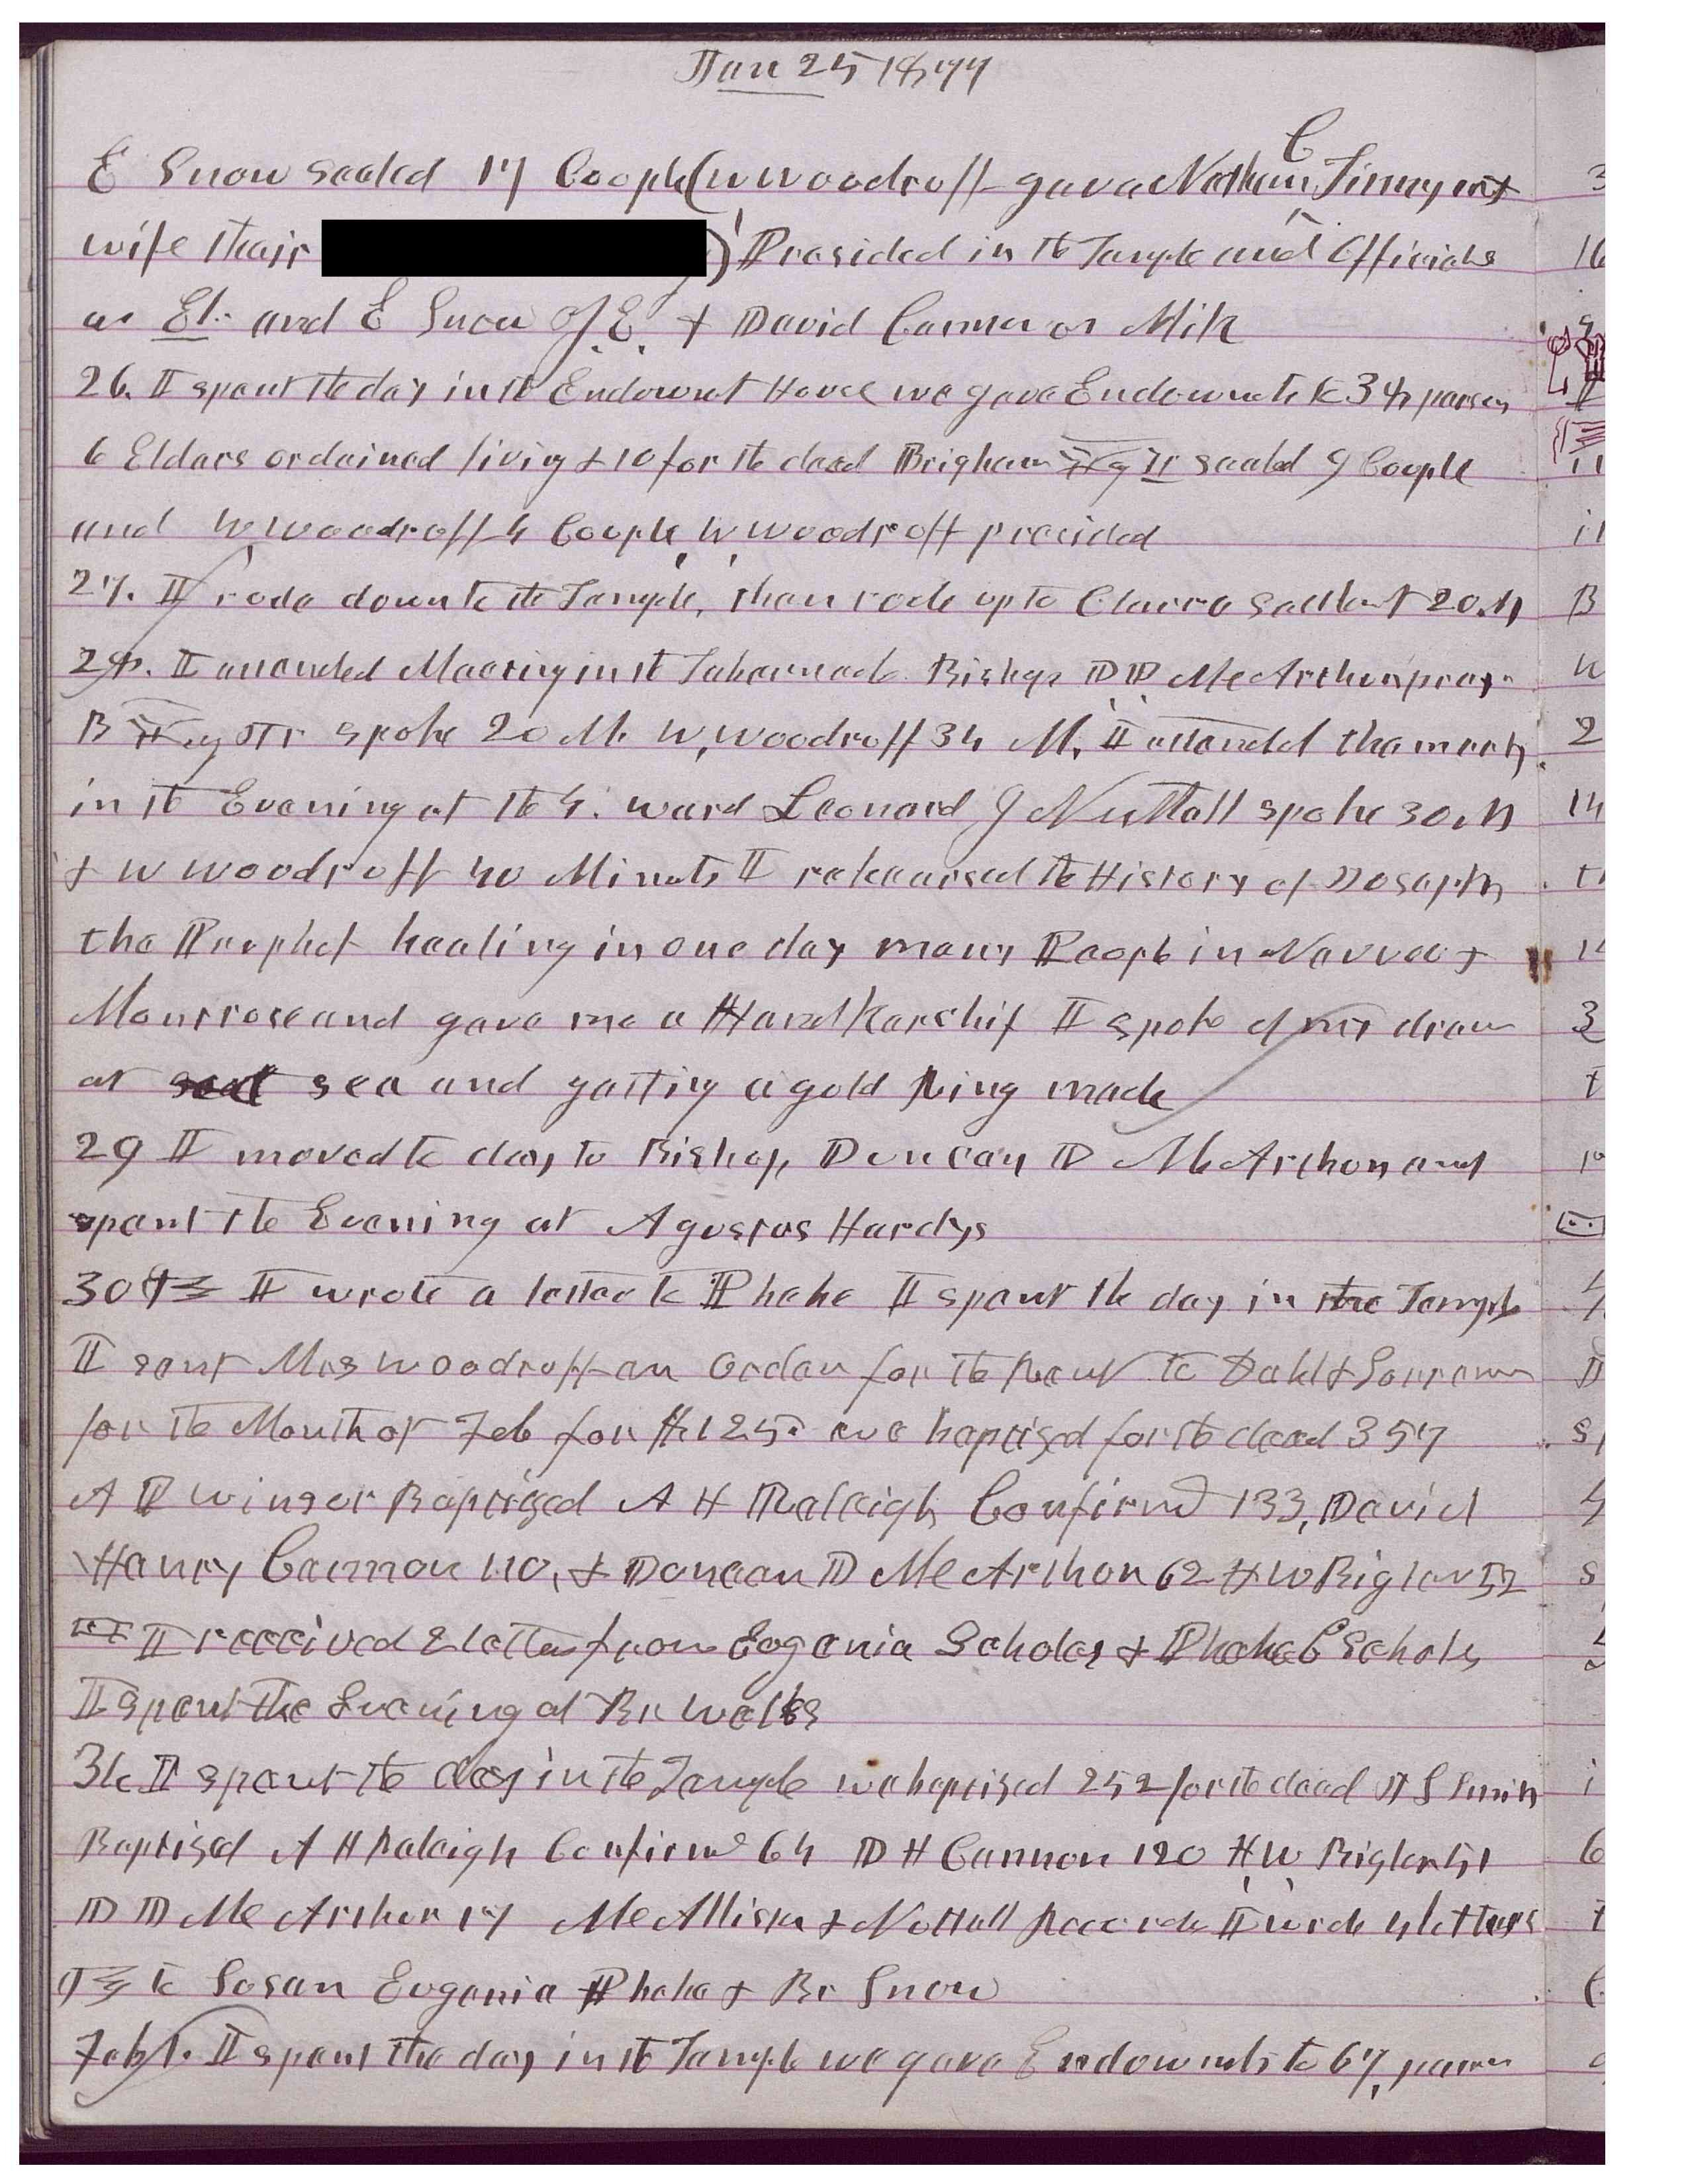 Jan 25 1877
E Snow sealed 17 Couple (W Woodruff gave Nathan C Tinny and
wife thair ) Presided in the Temple and Officiate
as El. and E Snow J. E. + David Cannon as Mik
26. I spent the day in the Endowmet House we gave Endowmets to 34 person
6 Elders ordained living + 10 for the dead Brigham Yg Jr sealed 9 Couple
and W Woodruff 4 Couple W Woodruff presided
27. I rode down to the Temple, than rode up to Clarra Settlemt 20. M
28. I attended Meeting in the Tabernacle Bishop D D McArthur pray
B Yg Jr spoke 20 M. W, Woodruff 34 M, I attended the meeting
in the Evening at the 4. ward Leonard J Nuttall spoke 30. M
+ W Woodruff 40 Minuts I rehearsed the History of Joseph
the Prophet healing in one day many People in Navvoo +
Montrose and gave me a Hand Karchif I spoke of my dream
at sea and getting a gold Ring made
29 I moved to day to Bishop Duncan D McArthur and
spent the Evening at Agustus Hardys
30 I wrote a letter to Phebe I spent the day in the Temple
I sent Mrs Woodruff an Order for the Rent to Dahl +
for the Month of Feb for $125. we baptised for the dead 357
A P Winsor Baptized A H Raleigh Confirmd 133, David
Henry Cannon 110, + Duncan D McArthur 62 H W Bigler 52
I received 2 letters from Eugenia Scholes + Phebe C Scholes
I spent the Evening at Br Wells
31 I spent the day in the Temple we baptised 252 for the dead J S Smith
Baptised A H Raleigh Confirmd 64 D H Cannon 120 H W Bigler 51
D D McArthur 17 McAllister + Nuttall Records I wrote 4 letters
to Susan Eugenia Phebe + Br Snow
Feb 1. I spent the day in the Temple we gave Endowmets to 67, person